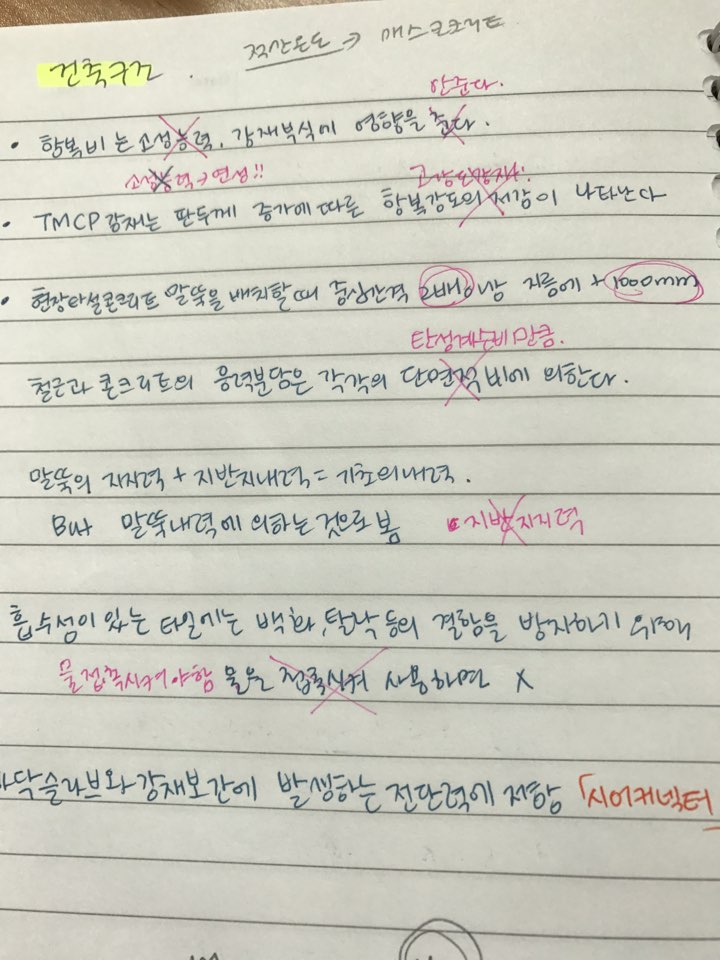 적산온도 → 매스콘크리트
건축구조.
안준다.
• 항복비는 소성능력, 강재부식에 영향을 준다.
소성능력→연성!!
• TMCP강재는 판두께 증가에 따른 항복강도의 저감이 나타난다
• 현장타설콘크리트 말뚝을 배치할때 중심간격 2배이상 지름에 + 1000mm
탄성계수비만큼.
철근과 콘크리트의 응력분담은 각각의 단면적 비에 의한다.
말뚝의 지지력 + 지반지내력 = 기초의내력.
But 말뚝내력에 의하는것으로 봄 지반지지력
흡수성이 있는 타일에는 백화, 탈락 등의 결함을 방지하기 위해
물접촉시켜야함 물을 접촉시켜 사용하면 X
바닥슬라브와 강재보간에 발생하는 전단력에 저항 「시어커넥터